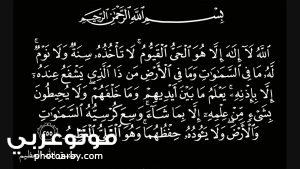 بِسْمِ اللَّهِ الرَّحْمَٰنِ الرَّحِيمِ
اللَّهُ لَا إِلَٰهَ إِلَّا هُوَ الْحَيُّ الْقَيُّومُ ۚ لَا تَأْخُذُهُ سِنَةٌ وَلَا نَوْمٌ ۚ
لَّهُ مَا فِي السَّمَٰوَٰتِ وَمَا فِي الْأَرْضِ ۗ مَن ذَا الَّذِي يَشْفَعُ عِندَهُ
إِلَّا بِإِذْنِهِ ۚ يَعْلَمُ مَا بَيْنَ أَيْدِيهِمْ وَمَا خَلْفَهُمْ ۖ وَلَا يُحِيطُونَ
بِشَيْءٍ مِّنْ عِلْمِهِ إِلَّا بِمَا شَاءَ ۚ وَسِعَ كُرْسِيُّهُ السَّمَٰوَٰتِ
وَالْأَرْضَ ۖ وَلَا يَئُودُهُ حِفْظُهُمَا ۚ وَهُوَ الْعَلِيُّ الْعَظِيمُ ٢٥٥
فوتو عربي
photoarby.com
العظيم